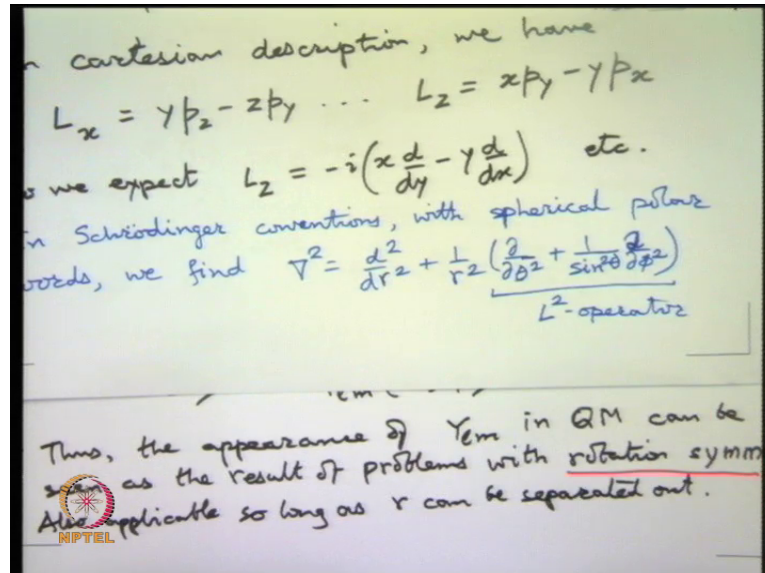 n cartesian description, we have
L_x = yp_z - zp_y ... L_z = xp_y - yp_x
o we expect L_z = -i(x d/dy - y d/dx) etc.
n Schrödinger conventions, with spherical polar
oords, we find ∇² = d²/dr² + 1/r² (∂/∂θ² + 1/sin²θ ∂/∂φ²)
L²-operator
Thus, the appearance of Yem in QM can be
seen as the result of problems with rotation symm
Also applicable so long as r can be separated out.
NPTEL